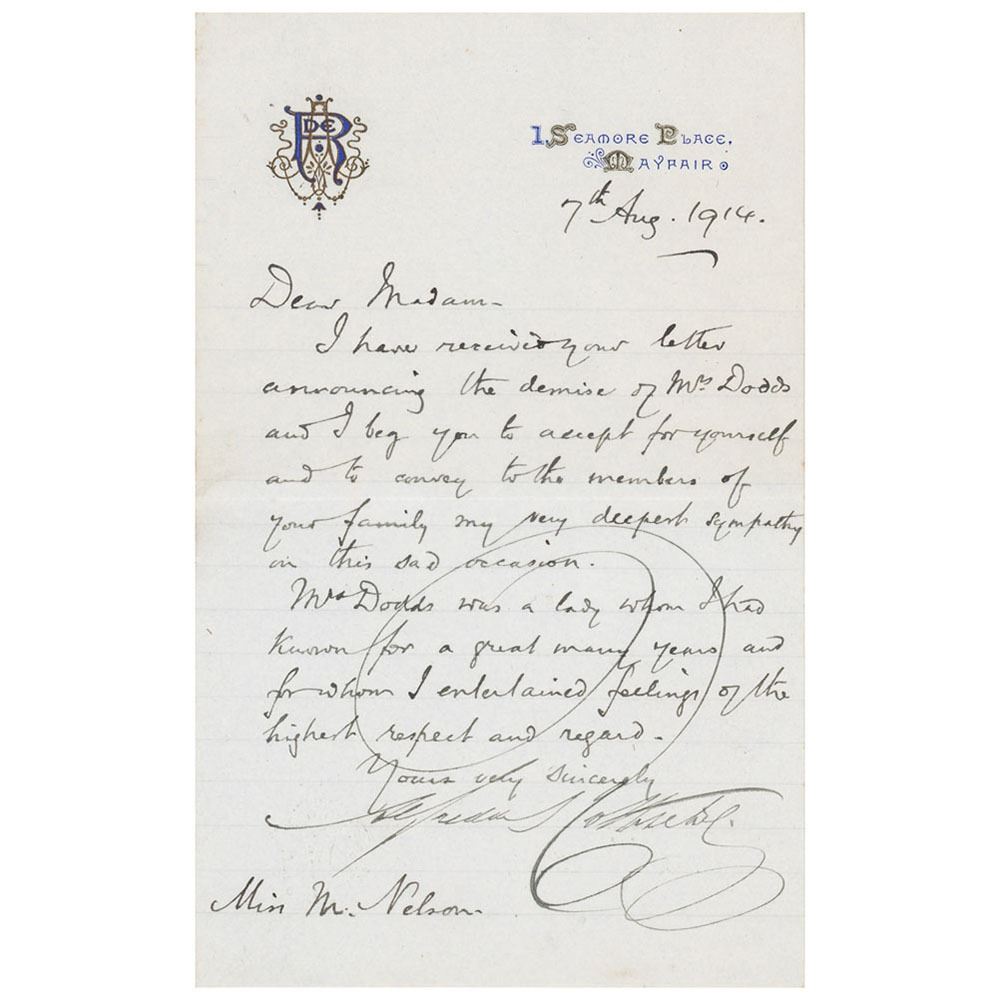 DE R
1, SEAMORE PLACE,
MAYFAIR
7th Aug. 1914.
Dear Madam -
I have received your letter
announcing the demise of Mrs Dodds
and I beg you to accept for yourself
and to convey to the members of
your family my very deepest sympathy
on this sad occasion.
Mrs Dodds was a lady whom I had
known for a great many years and
for whom I entertained feelings of the
highest respect and regard -
Yours very sincerely
Alfred de Rothschild.
Miss M. Nelson.